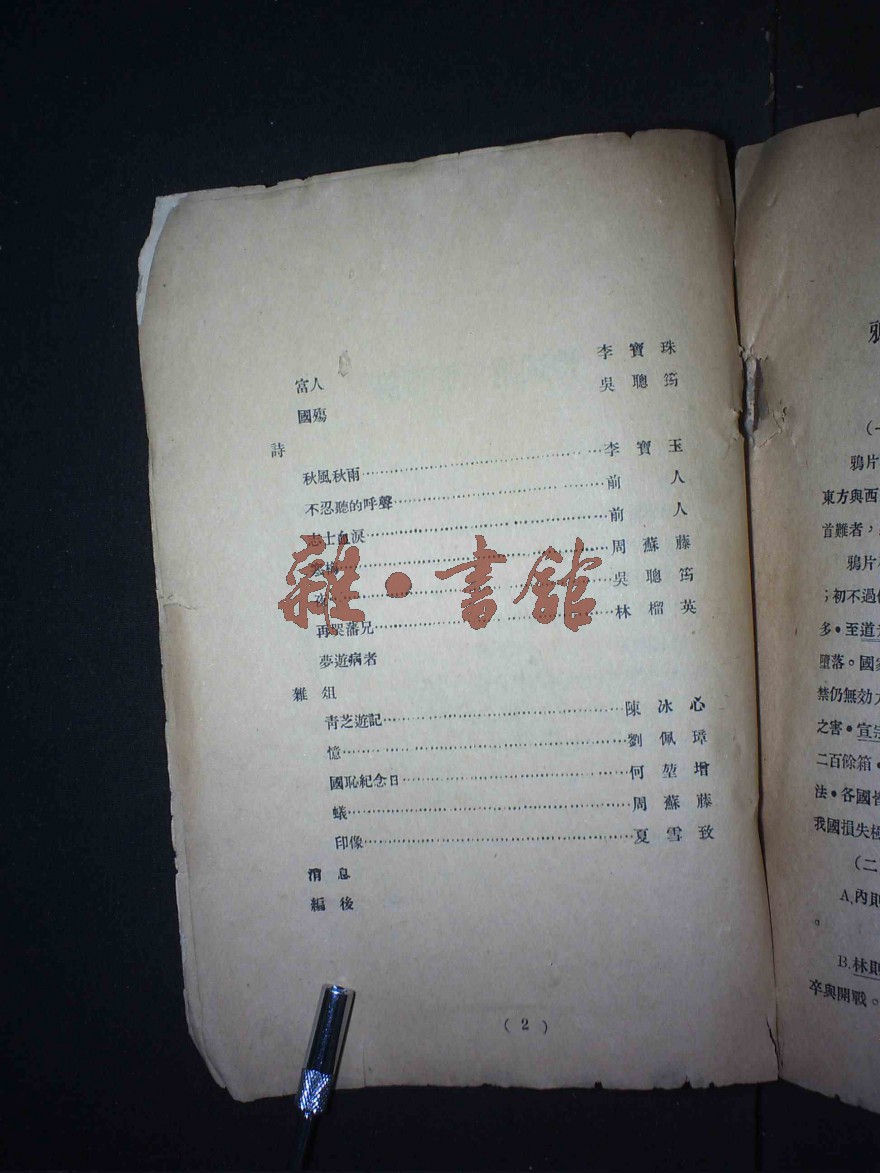 富人 李寶珠
國殤 吳聰筠
詩
秋風秋雨……李寶玉
不忍聽的呼聲……前人
志士血淚……前人
……周蘇藤
夜……吳聰筠
再哭藩兄……林榴英
夢遊病者
雜俎
青芝遊記……陳冰心
憶……劉佩璋
國恥紀念日……何堃增
蟻……周蘇藤
印像……夏雪致
消息
編後
(2)
雜•書館
鴉片
東方與西
首難者，
鴉片
；初不過
多•至道
墮落。國家
禁仍無効力
之害•宣宗
二百餘箱•
法•各國皆
我國損失極
(二
A.內則
。
B.林則
卒與開戰。